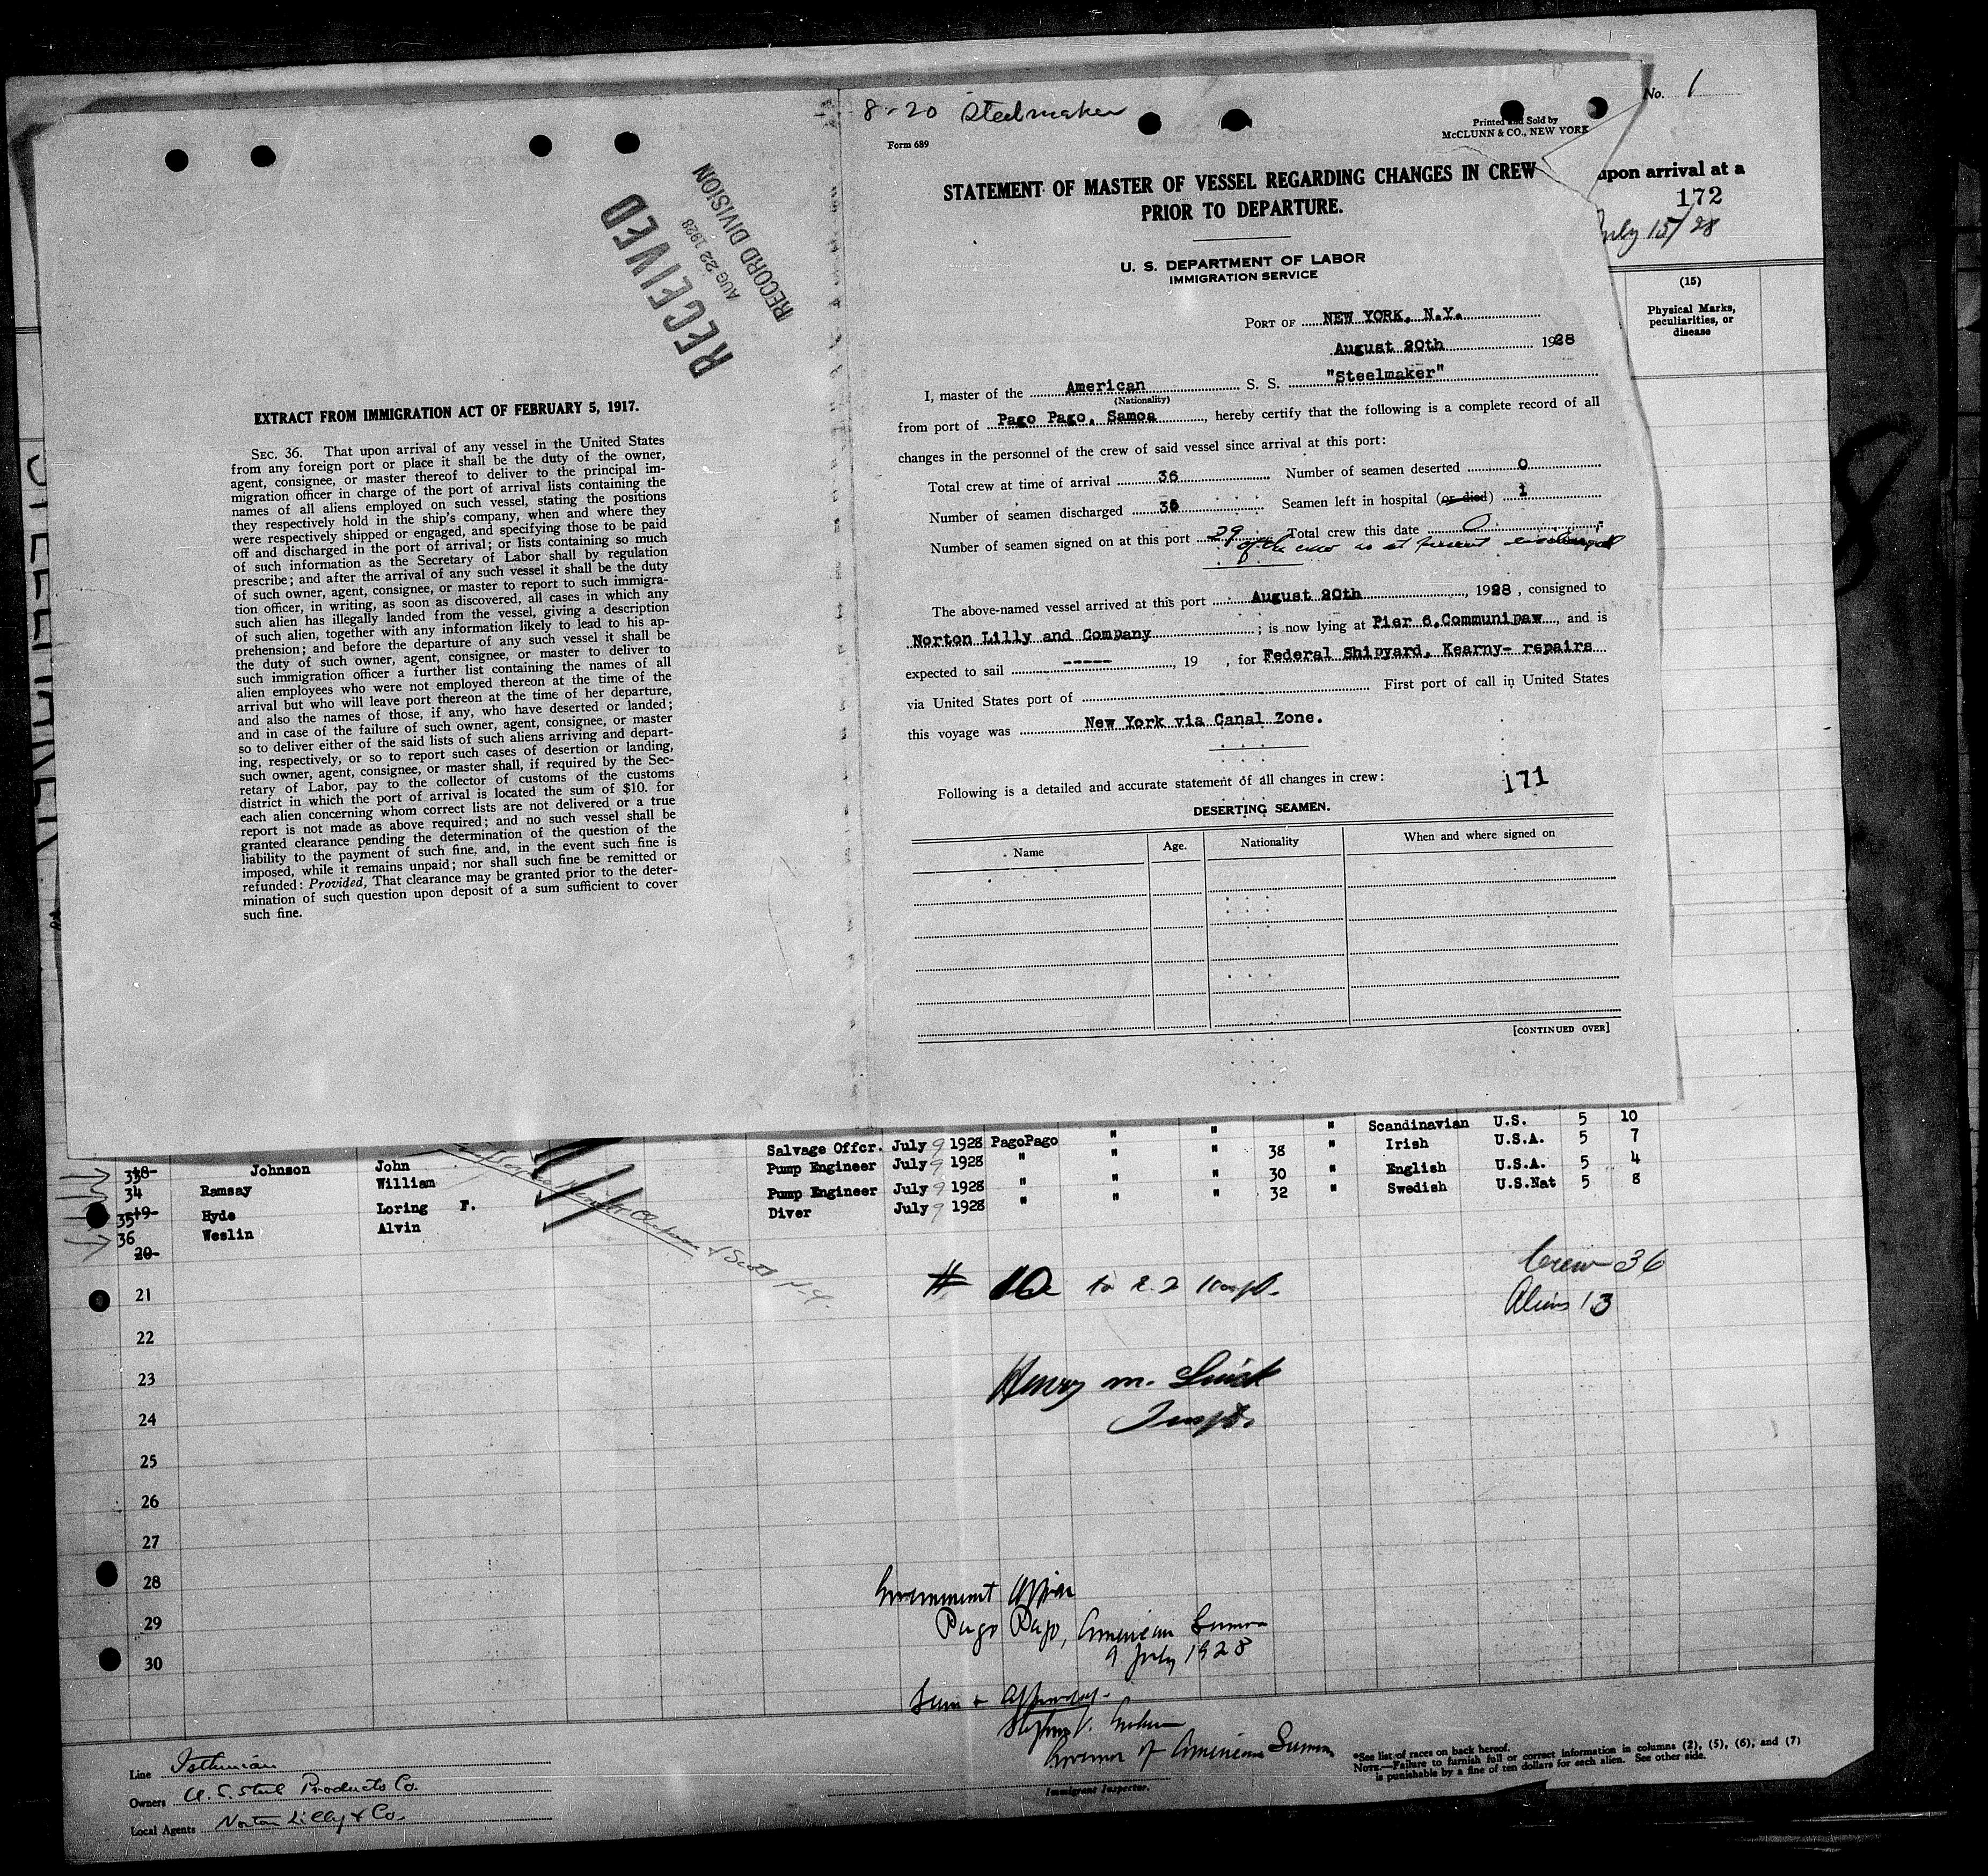 8-20 Steelmaker
Form 689
Printed and Sold by
McCLUNN & CO., NEW YORK
No. 1
STATEMENT OF MASTER OF VESSEL REGARDING CHANGES IN CREW
PRIOR TO DEPARTURE.
upon arrival at a
172
July 15/28
U. S. DEPARTMENT OF LABOR
IMMIGRATION SERVICE
(15)
Physical Marks,
peculiarities, or
disease
PORT OF NEW YORK, N.Y.
August 20th 1928
I, master of the American S. S. "Steelmaker"
(Nationality)
from port of Pago Pago, Samoa, hereby certify that the following is a complete record of all
changes in the personnel of the crew of said vessel since arrival at this port:
Total crew at time of arrival 36 Number of seamen deserted 0
Number of seamen discharged 35 Seamen left in hospital (or died) 1
Number of seamen signed on at this port 29 Total crew this date 0
of the crew as at present discharged
The above-named vessel arrived at this port August 20th, 1928, consigned to
Norton Lilly and Company; is now lying at Pier 6, Communipaw, and is
expected to sail -----, 19 , for Federal Shipyard, Kearny- repairs
via United States port of First port of call in United States
this voyage was New York via Canal Zone.
Following is a detailed and accurate statement of all changes in crew:
171
DESERTING SEAMEN.
Name Age. Nationality When and where signed on
[CONTINUED OVER]
RECEIVED
AUG 22 1928
RECORD DIVISION
EXTRACT FROM IMMIGRATION ACT OF FEBRUARY 5, 1917.
SEC. 36. That upon arrival of any vessel in the United States
from any foreign port or place it shall be the duty of the owner,
agent, consignee, or master thereof to deliver to the principal im-
migration officer in charge of the port of arrival lists containing the
names of all aliens employed on such vessel, stating the positions
they respectively hold in the ship's company, when and where they
were respectively shipped or engaged, and specifying those to be paid
off and discharged in the port of arrival; or lists containing so much
of such information as the Secretary of Labor shall by regulation
prescribe; and after the arrival of any such vessel it shall be the duty
of such owner, agent, consignee, or master to report to such immigra-
tion officer, in writing, as soon as discovered, all cases in which any
such alien has illegally landed from the vessel, giving a description
of such alien, together with any information likely to lead to his ap-
prehension; and before the departure of any such vessel it shall be
the duty of such owner, agent, consignee, or master to deliver to
such immigration officer a further list containing the names of all
alien employees who were not employed thereon at the time of the
arrival but who will leave port thereon at the time of her departure,
and also the names of those, if any, who have deserted or landed;
and in case of the failure of such owner, agent, consignee, or master
so to deliver either of the said lists of such aliens arriving and depart-
ing, respectively, or so to report such cases of desertion or landing,
such owner, agent, consignee, or master shall, if required by the Sec-
retary of Labor, pay to the collector of customs of the customs
district in which the port of arrival is located the sum of $10. for
each alien concerning whom correct lists are not delivered or a true
report is not made as above required; and no such vessel shall be
granted clearance pending the determination of the question of the
liability to the payment of such fine, and, in the event such fine is
imposed, while it remains unpaid; nor shall such fine be remitted or
refunded: Provided, That clearance may be granted prior to the deter-
mination of such question upon deposit of a sum sufficient to cover
such fine.
33 18 Johnson John Salvage Offcr. July 9 1928 PagoPago " " " Scandinavian U.S. 5 10
34 Ramsay William Pump Engineer July 9 1928 " " " 38 " Irish U.S.A. 5 7
35 19 Hyde Loring F. Pump Engineer July 9 1928 " " " 30 " English U.S.A. 5 4
36 Weslin Alvin Diver July 9 1928 " " " 32 " Swedish U.S.Nat 5 8
20
# 10 to Hospt.
Crew 36
Aliens 13
21
22
23
24
25
26
27
28
29
30
Henry M.
Inspt.
Government Office
Pago Pago, American Samoa
9 July 1928
Seen & approved.
Stephen V. Graham
Governor of American Samoa
Immigrant Inspector.
Line Isthmian
Owners U.S. Steel Products Co.
Local Agents Norton Lilly & Co.
*See list of races on back hereof.
NOTE.—Failure to furnish full or correct information in columns (2), (5), (6), and (7)
is punishable by a fine of ten dollars for each alien. See other side.